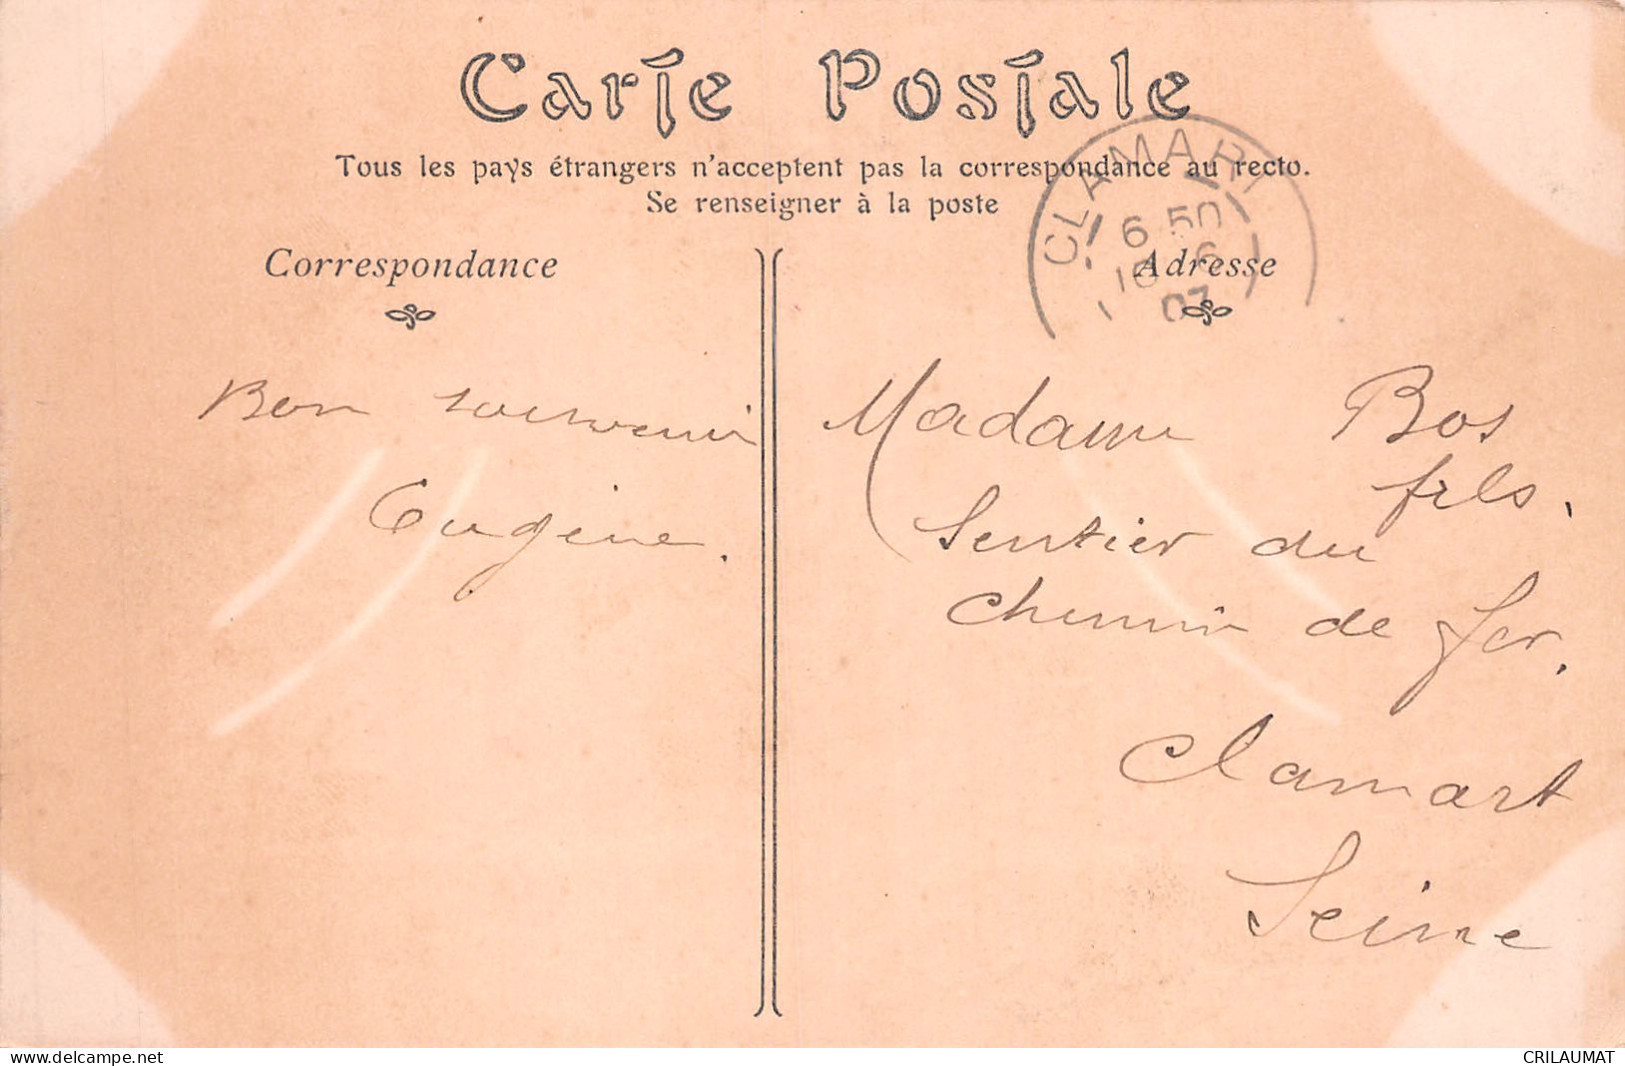 Carte Postale
Tous les pays étrangers n'acceptent pas la correspondance au recto.
Se renseigner à la poste
CLAMART
6 50
6
07
Correspondance
Adresse
Bon souvenir
Eugène.
Madame Bos
fils.
Sentier du
Chemin de fer.
Clamart
Seine
delcampe.net
CRILAUMAT